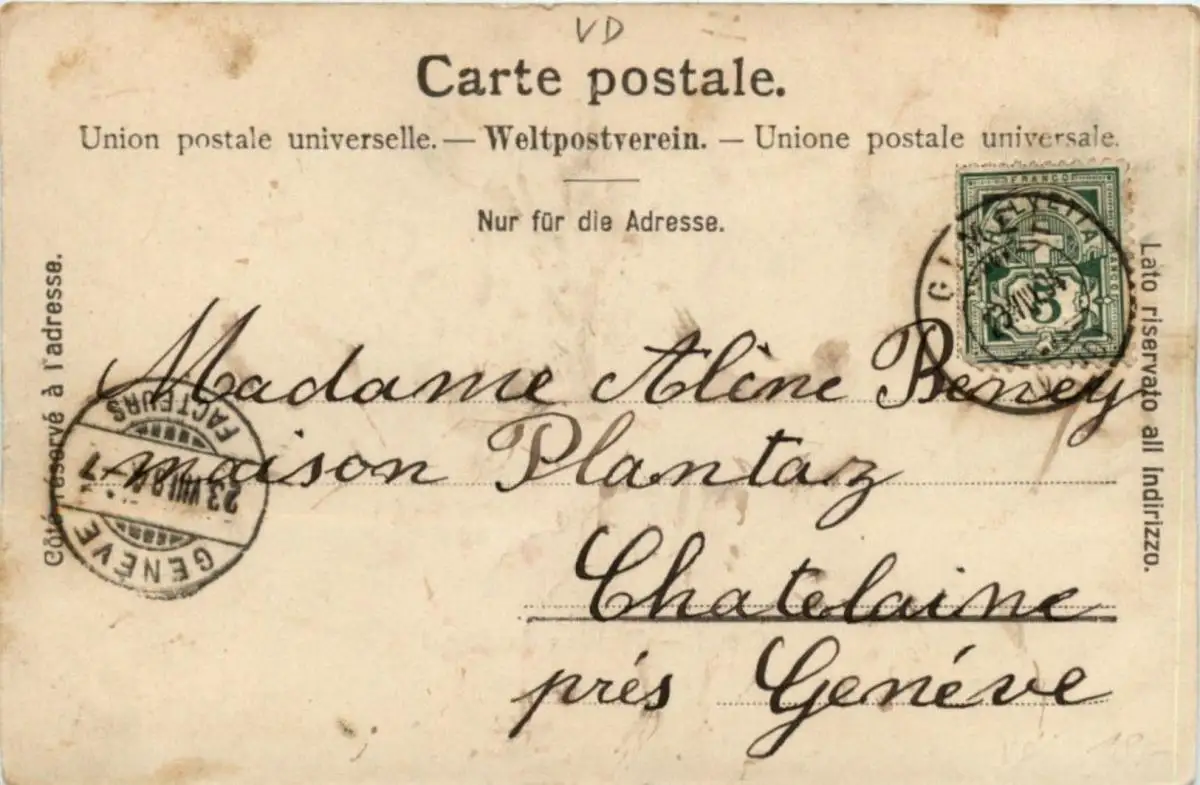 VD
Carte postale.
Union postale universelle. — Weltpostverein. — Unione postale universale.
Nur für die Adresse.
Côté réservé à l'adresse.
Lato riservato all indirizzo.
FRANCO
HELVETIA
5
GIMEL
Madame Aline Beney
maison Plantaz
Chatelaine
prés Genéve
GENÈVE
23 VIII
FACTEURS